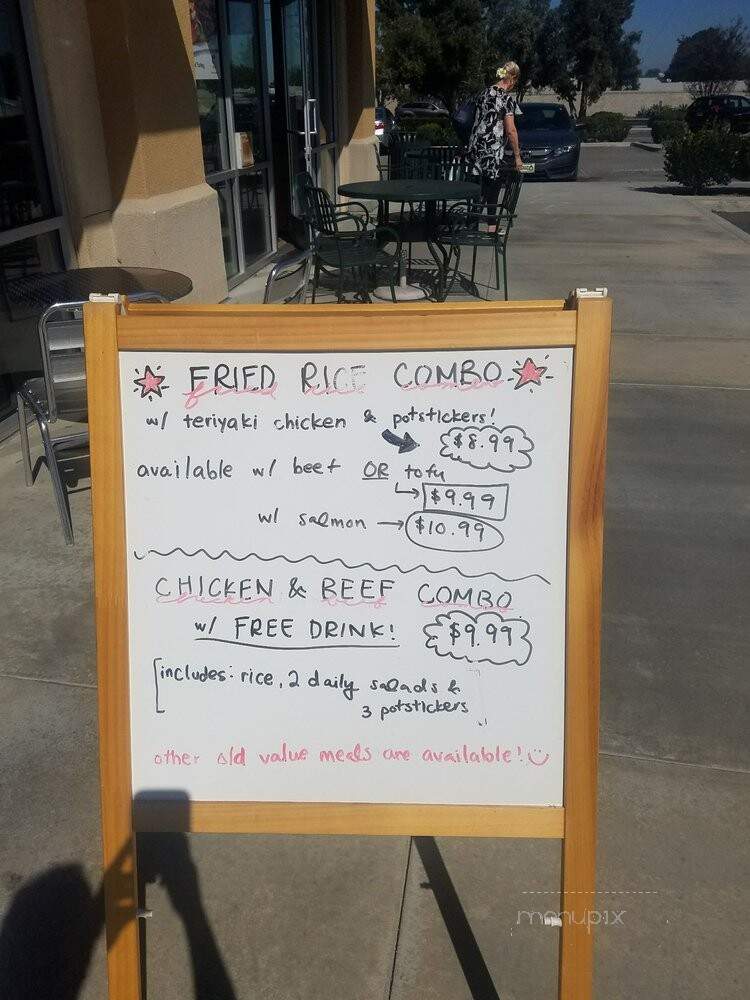 FRIED RICE COMBO
w/ teriyaki chicken & potstickers!
$8.99
available w/ beef OR tofu
$9.99
w/ salmon $10.99
CHICKEN & BEEF COMBO
w/ FREE DRINK! $9.99
[includes: rice, 2 daily salads &
3 potstickers]
other old value meals are available!
menupix